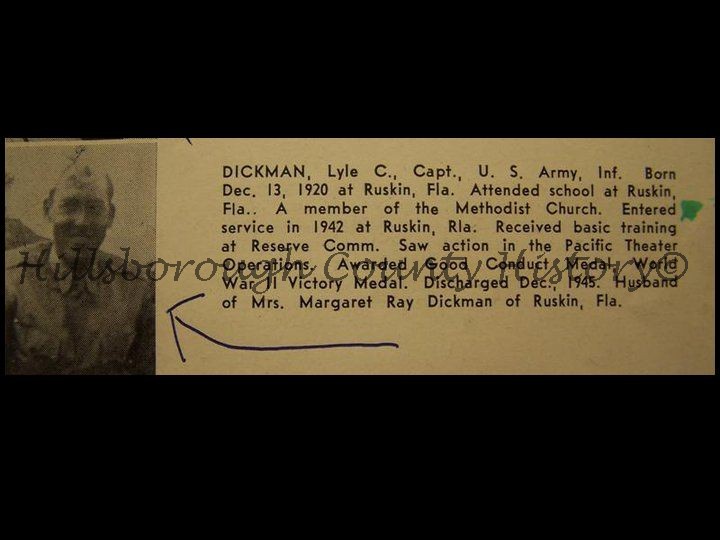 DICKMAN, Lyle C., Capt., U. S. Army, Inf. Born
Dec. 13, 1920 at Ruskin, Fla. Attended school at Ruskin,
Fla.. A member of the Methodist Church. Entered
service in 1942 at Ruskin, Rla. Received basic training
at Reserve Comm. Saw action in the Pacific Theater
Hillsborough County History©
Operations. Awarded Good Conduct Medal, World
War II Victory Medal. Discharged Dec., 1945. Husband
of Mrs. Margaret Ray Dickman of Ruskin, Fla.